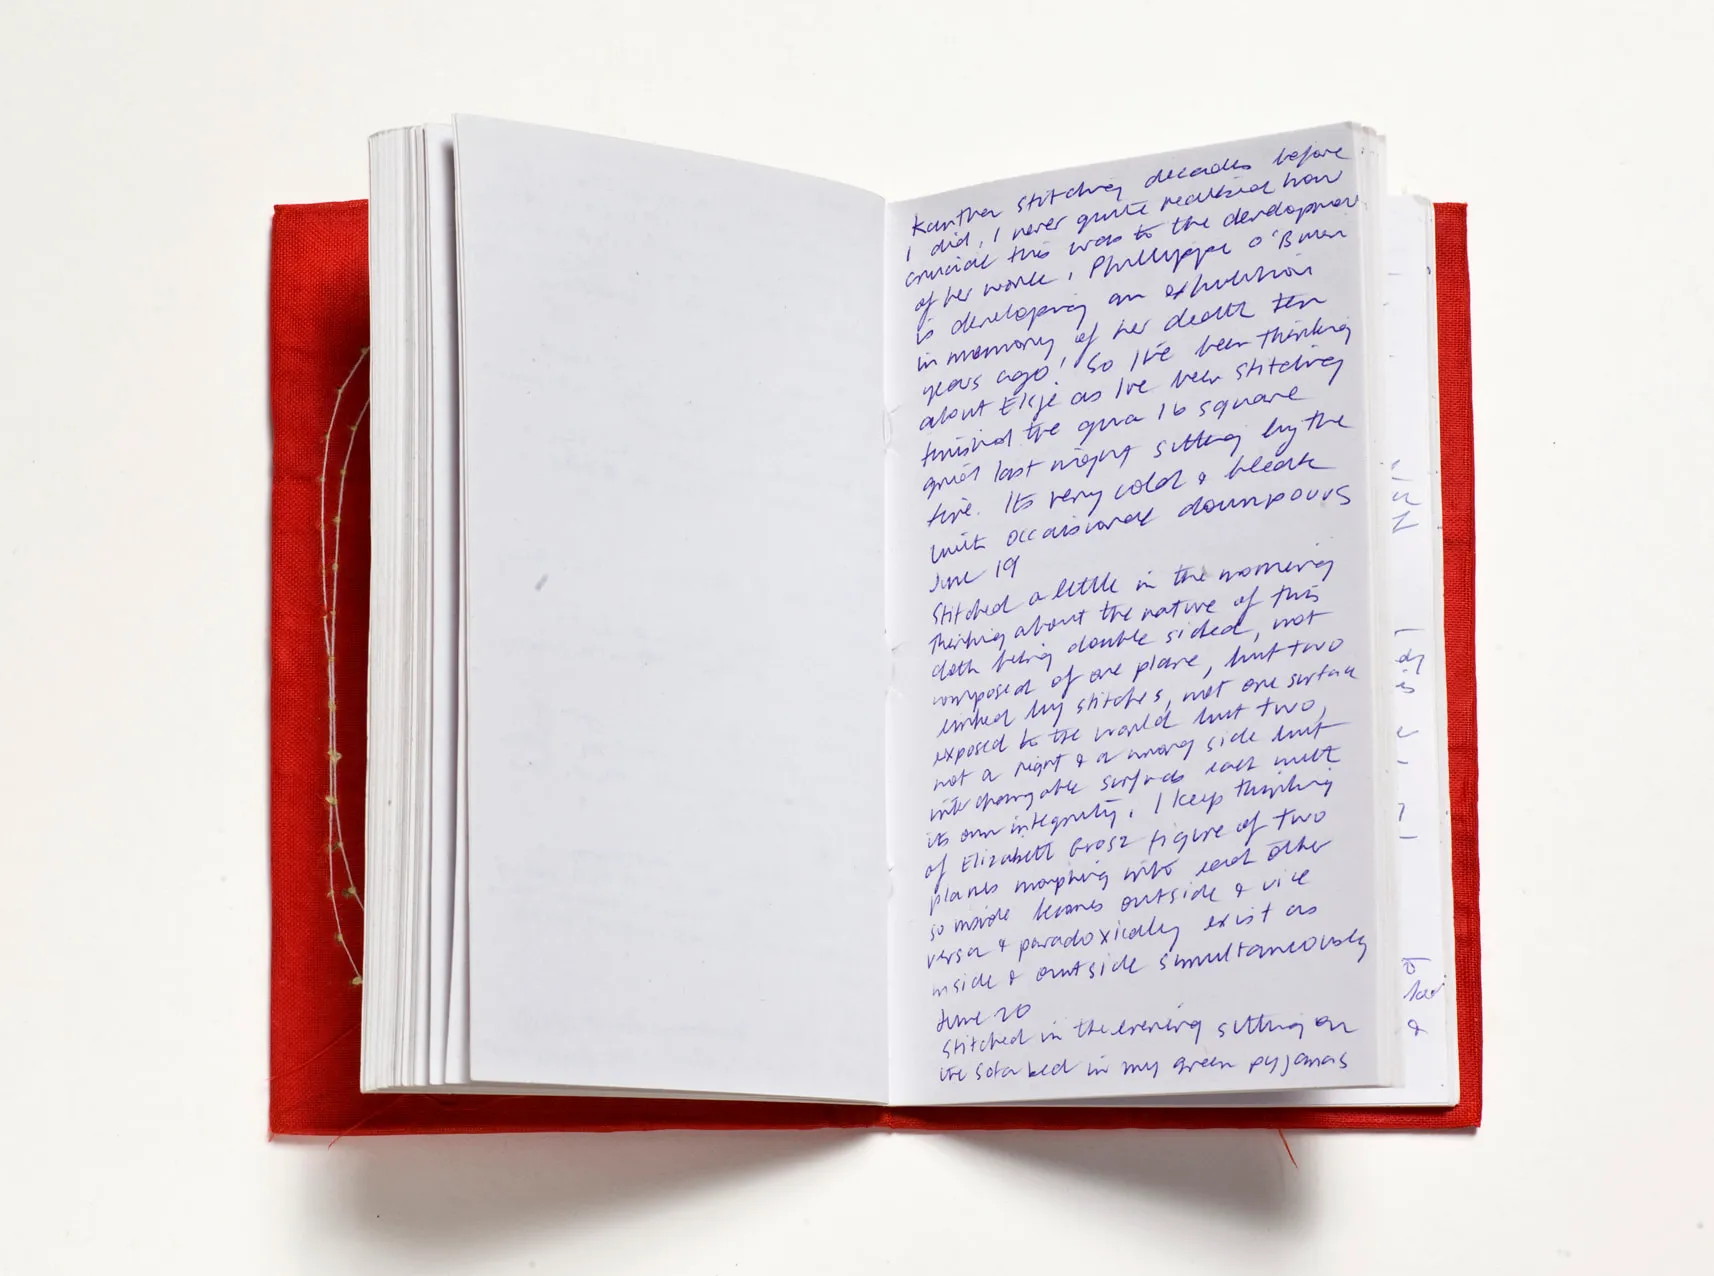 Kantha stitching decades before
I did, I never quite realised how
crucial this was to the development
of her work. Phillippa O'Brien
is developing an exhibition
in memory of her death ten
years ago! So I've been thinking
about Elsje as I've been stitching
finished the 16 square
grid last night sitting by the
fire. Its very cold & bleak
with occaisional downpours
June 19
Stitched a little in the morning
thinking about the nature of this
cloth being double sided, not
composed of one plane, but two
linked by stitches, not one surface
exposed to the world but two,
not a right & a wrong side but
interchangable surfaces each with
its own integrity. I keep thinking
of Elizabeth Grosz figure of two
planes morphing into each other
so inside becomes outside & vice
versa & paradoxically exist as
inside & outside simultaneously
June 20
Stitched in the evening sitting on
the sofa bed in my green pyjamas